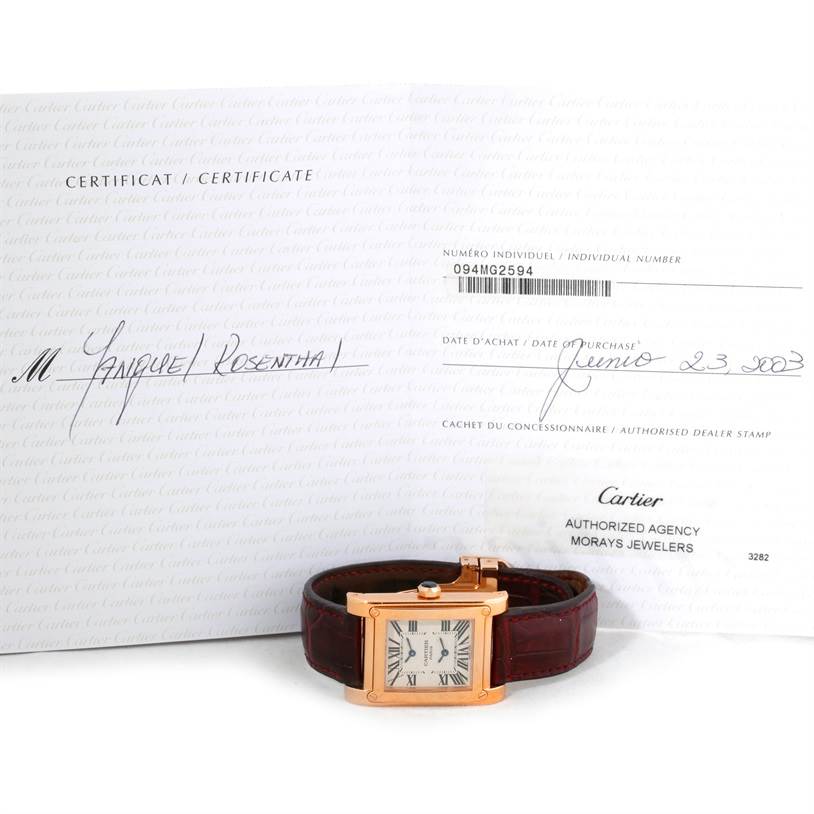 CERTIFICAT / CERTIFICATE
NUMÉRO INDIVIDUEL / INDIVIDUAL NUMBER
094MG2594
M Yanquel Rosenthal
DATE D'ACHAT / DATE OF PURCHASE
Junio 23, 2003
CACHET DU CONCESSIONNAIRE / AUTHORISED DEALER STAMP
Cartier
AUTHORIZED AGENCY
MORAYS JEWELERS
3282
CARTIER
PARIS